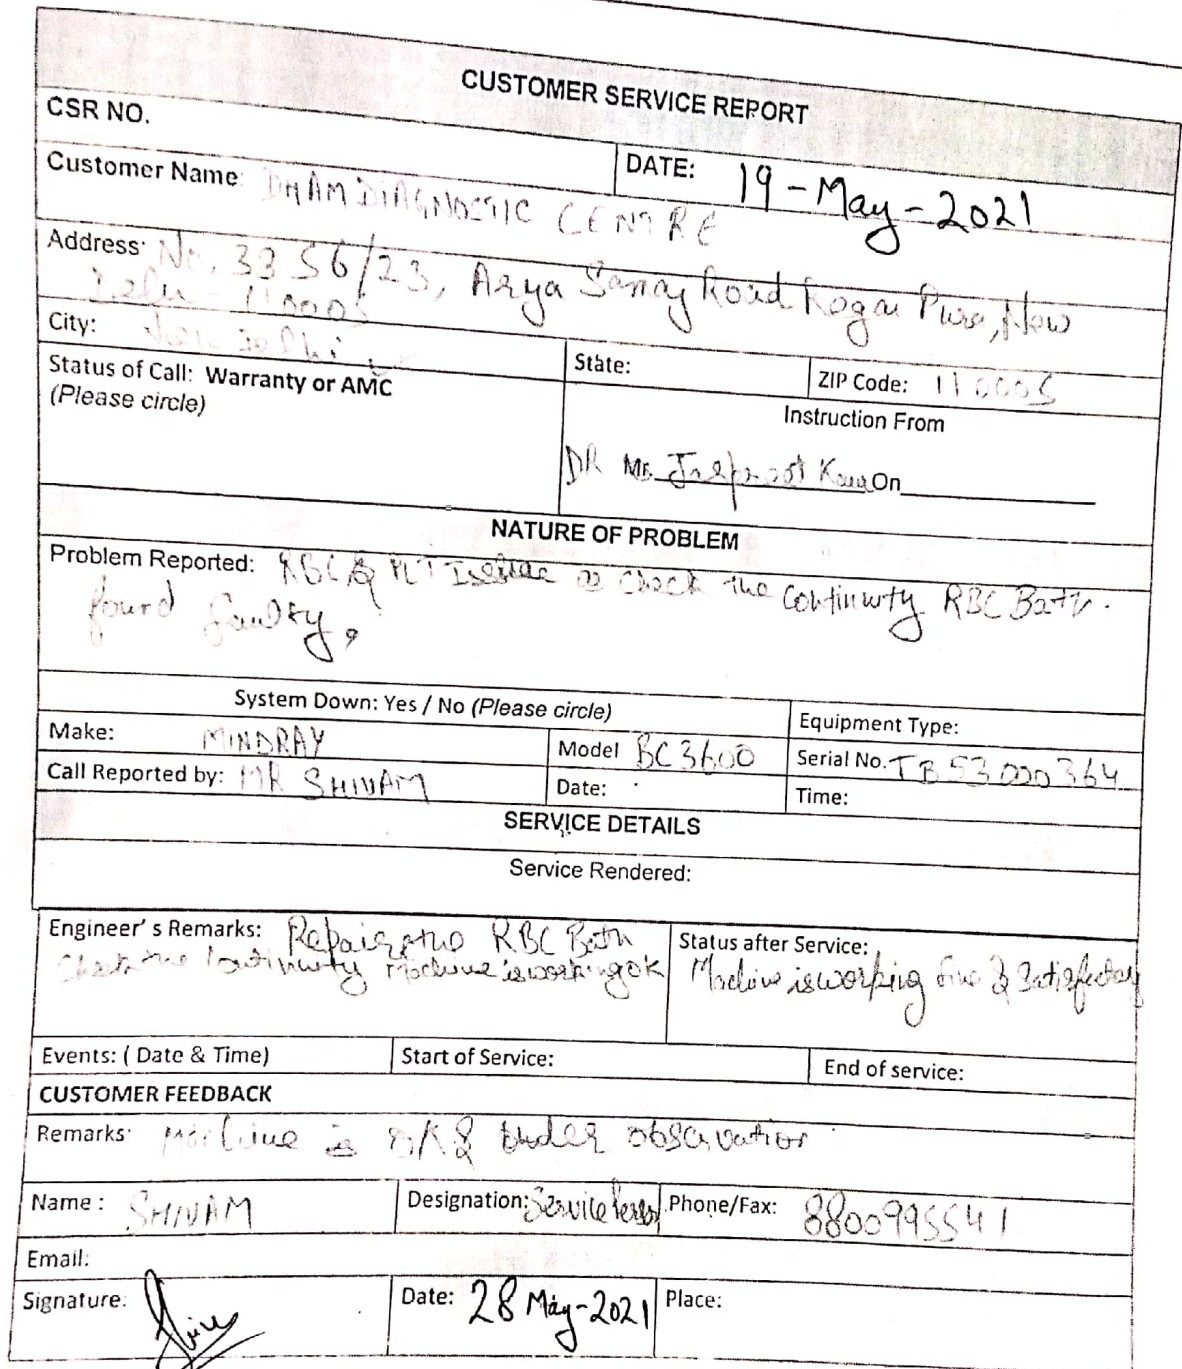 CUSTOMER SERVICE REPORT
CSR NO.
DATE: 19-May-2021
Customer Name: DHAM DIAGNOSTIC CENTRE
Address: No. 3356/23, Arya Samaj Road Pura, New
110005
City:
State:
ZIP Code: 110005
Status of Call: Warranty or AMC
(Please circle)
Instruction From
DR Mr. Kaur On
NATURE OF PROBLEM
Problem Reported: RBC & PLT check the Continuity RBC Bath.
found faulty,
System Down: Yes / No (Please circle)
Equipment Type:
Make: MINDRAY
Model BC 3600
Serial No. TB53000364
Call Reported by: MR SHIVAM
Date:
Time:
SERVICE DETAILS
Service Rendered:
Engineer's Remarks: RBC Bath
Check the Continuity Machine is working ok
Status after Service:
Machine is working fine & Satisfactory
Events: ( Date & Time)
Start of Service:
End of service:
CUSTOMER FEEDBACK
Remarks: Machine is OK & under observation
Name : SHIVAM
Designation: Service
Phone/Fax: 8800995541
Email:
Signature:
Date: 28 May-2021
Place: